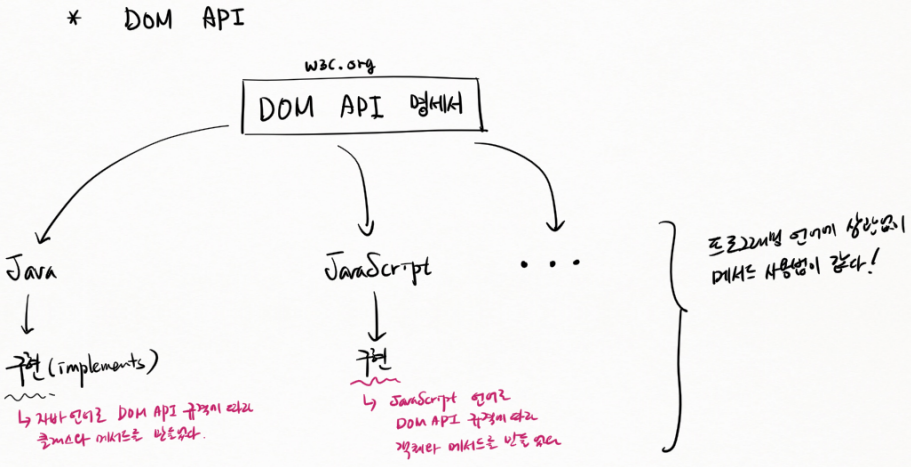 * DOM API
w3c.org
DOM API 명세서
Java
JavaScript
• • •
프로그래밍 언어에 상관없이
메서드 사용법이 같다!
구현 (implements)
↳ 자바 언어로 DOM API 규격에 따라
클래스와 메서드를 만들었다.
구현
↳ JavaScript 언어로
DOM API 규격에 따라
객체와 메서드를 만들었다